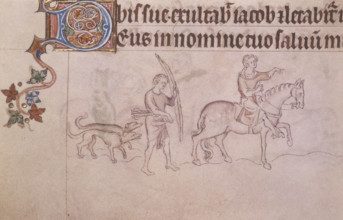 bis sue exultab̄ iacob ⁊ letabit̄ i
Eus in nomine tuo saluū m